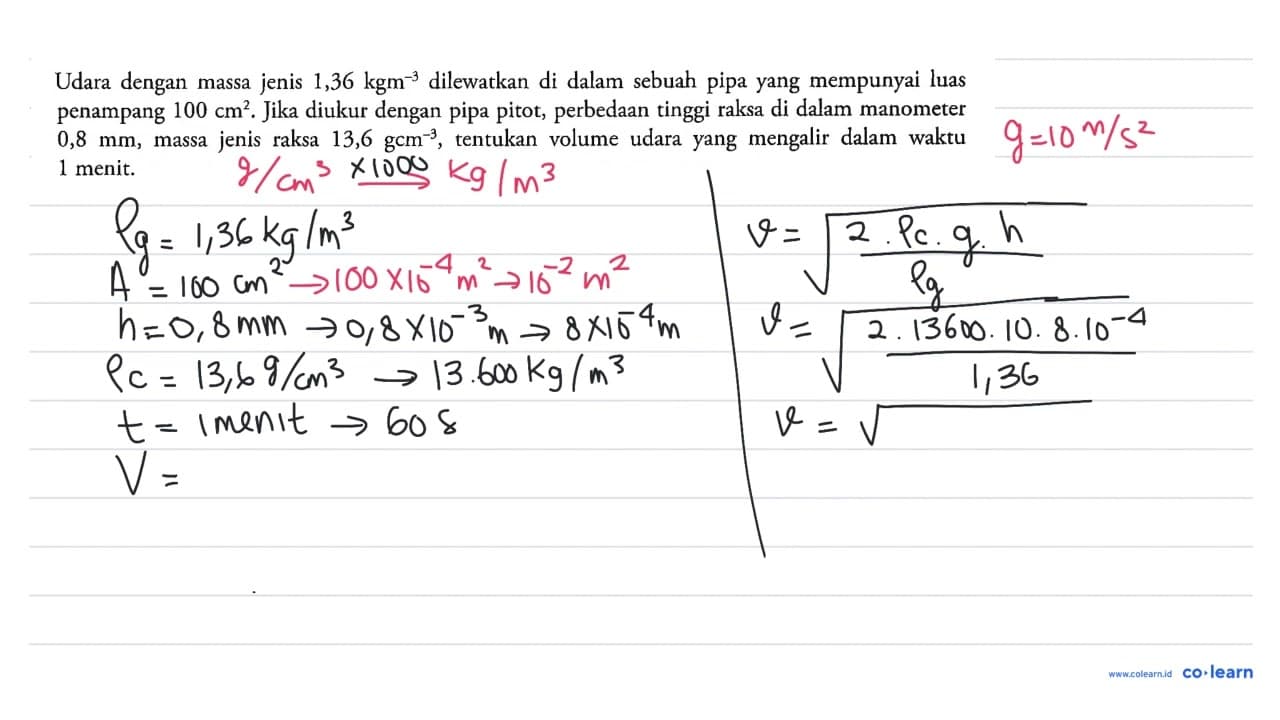 Udara dengan massa jenis 1,36 kgm⁻³ dilewatkan di dalam sebuah pipa yang mempunyai luas
penampang 100 cm². Jika diukur dengan pipa pitot, perbedaan tinggi raksa di dalam manometer
0,8 mm, massa jenis raksa 13,6 gcm⁻³, tentukan volume udara yang mengalir dalam waktu
1 menit.
g = 10 m/s²
g/cm³ ×1000→ kg/m³
ρg = 1,36 kg/m³
A = 100 cm² → 100 × 10⁻⁴ m² → 10⁻² m²
h = 0,8 mm → 0,8 × 10⁻³ m → 8 × 10⁻⁴ m
ρc = 13,6 g/cm³ → 13.600 kg/m³
t = 1 menit → 60 s
V =
v = √(2 . ρc . g . h / ρg)
v = √(2 . 13600 . 10 . 8 . 10⁻⁴ / 1,36)
v = √
www.colearn.id co·learn